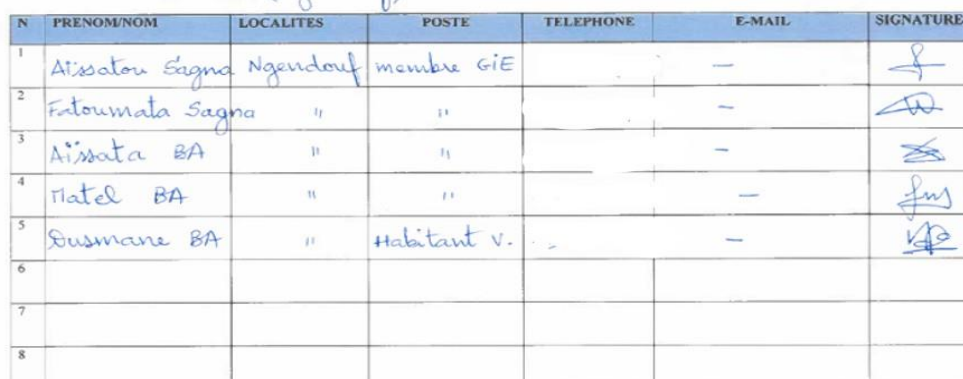 N PRENOM/NOM LOCALITES POSTE TELEPHONE E-MAIL SIGNATURE
1 Aïssatou Sagna Ngendouf membre GiE —
2 Fatoumata Sagna " " —
3 Aïssata BA " " —
4 Matel BA " " —
5 Ousmane BA " Habitant V. —
6
7
8